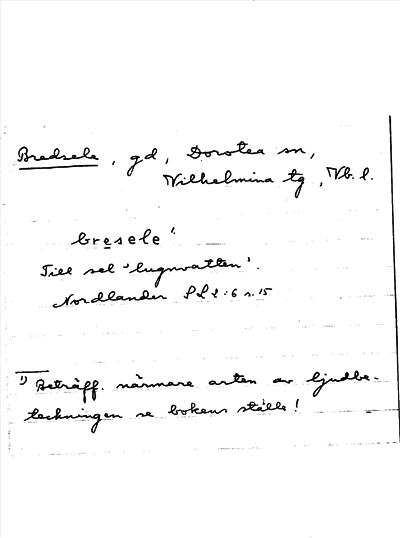 Bredsele, gd, Dorotea sn,
Vilhelmina tg, Vb. l.
bresele¹
Till sel 'lugnvatten'.
Nordlander SL 2:6 s. 15
¹) Beträff. närmare arten av ljudbe-
teckningen se bokens ställe!